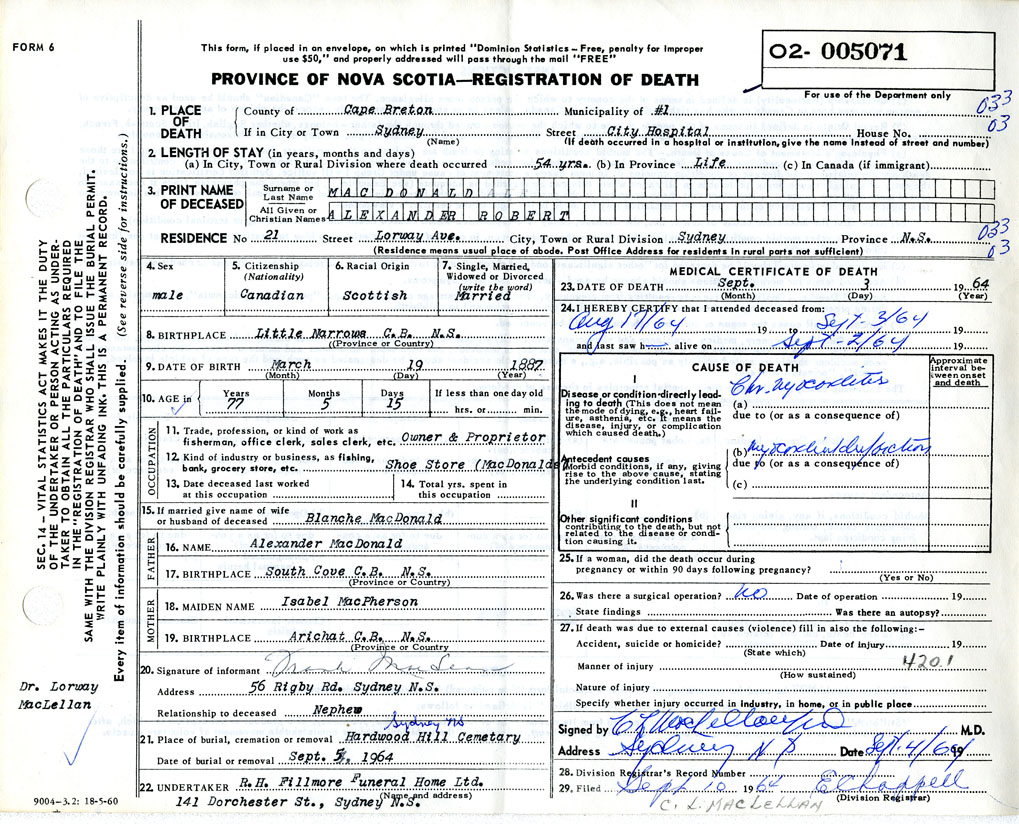 FORM 6
This form, if placed in an envelope, on which is printed "Dominion Statistics – Free, penalty for improper
use $50," and properly addressed will pass through the mail "FREE"
PROVINCE OF NOVA SCOTIA—REGISTRATION OF DEATH
02- 005071
For use of the Department only
033
03
1. PLACE OF DEATH
County of Cape Breton Municipality of #1
If in City or Town Sydney Street City Hospital House No.
(Name) (If death occurred in a hospital or institution, give the name instead of street and number)
2. LENGTH OF STAY (in years, months and days)
(a) In City, Town or Rural Division where death occurred 54 yrs. (b) In Province Life (c) In Canada (if immigrant)
3. PRINT NAME OF DECEASED
Surname or Last Name MAC DONALD
All Given or Christian Names ALEXANDER ROBERT
RESIDENCE No 21 Street Lorway Ave. City, Town or Rural Division Sydney Province N.S.
(Residence means usual place of abode. Post Office Address for residents in rural parts not sufficient)
033
03
4. Sex
male
5. Citizenship (Nationality)
Canadian
6. Racial Origin
Scottish
7. Single, Married, Widowed or Divorced (write the word)
Married
8. BIRTHPLACE Little Narrows C.B. N.S.
(Province or Country)
9. DATE OF BIRTH March 19 1887
(Month) (Day) (Year)
10. AGE in Years 77 Months 5 Days 15 If less than one day old
hrs. or min.
OCCUPATION
11. Trade, profession, or kind of work as
fisherman, office clerk, sales clerk, etc. Owner & Proprietor
12. Kind of industry or business, as fishing,
bank, grocery store, etc. Shoe Store (MacDonalds
13. Date deceased last worked
at this occupation
14. Total yrs. spent in
this occupation
15. If married give name of wife
or husband of deceased Blanche MacDonald
FATHER
16. NAME Alexander MacDonald
17. BIRTHPLACE South Cove C.B. N.S.
(Province or Country)
MOTHER
18. MAIDEN NAME Isabel MacPherson
19. BIRTHPLACE Arichat C.B. N.S.
(Province or Country
20. Signature of informant Frank MacLean
Address 56 Rigby Rd. Sydney N.S.
Relationship to deceased Nephew
Sydney NS
21. Place of burial, cremation or removal Hardwood Hill Cemetary
Date of burial or removal Sept. 5, 1964
22. UNDERTAKER R.H. Fillmore Funeral Home Ltd.
(Name and address)
141 Dorchester St., Sydney N.S.
MEDICAL CERTIFICATE OF DEATH
23. DATE OF DEATH Sept. 3 1964
(Month) (Day) (Year)
24. I HEREBY CERTIFY that I attended deceased from:
Aug 17/64 19 to Sept. 3/64 19
and last saw h alive on Sept-2/64 19
CAUSE OF DEATH
Approximate interval between onset and death
I
Disease or condition directly leading to death (This does not mean
the mode of dying, e.g., heart failure, asthenia, etc. It means the
disease, injury, or complication
which caused death.)
(a) Chr. myocarditis
due to (or as a consequence of)
Antecedent causes
Morbid conditions, if any, giving
rise to the above cause, stating
the underlying condition last.
(b)
due to (or as a consequence of)
(c)
II
Other significant conditions
contributing to the death, but not
related to the disease or condition causing it.
25. If a woman, did the death occur during
pregnancy or within 90 days following pregnancy?
(Yes or No)
26. Was there a surgical operation? no Date of operation 19
State findings Was there an autopsy?
27. If death was due to external causes (violence) fill in also the following:—
Accident, suicide or homicide? Date of injury 19
(State which)
420.1
Manner of injury
(How sustained)
Nature of injury
Specify whether injury occurred in industry, in home, or in public place
Signed by C L MacLellan M.D.
Address Sydney N S Date Sept. 4/64 19
28. Division Registrar's Record Number
29. Filed Sept 10 1964 E Chappell
(Division Registrar)
C. L. MACLELLAN
SEC. 14 – VITAL STATISTICS ACT MAKES IT THE DUTY
OF THE UNDERTAKER OR PERSON ACTING AS UNDERTAKER TO OBTAIN ALL THE PARTICULARS REQUIRED
IN THE "REGISTRATION OF DEATH" AND TO FILE THE
SAME WITH THE DIVISION REGISTRAR WHO SHALL ISSUE THE BURIAL PERMIT.
WRITE PLAINLY WITH UNFADING INK. THIS IS A PERMANENT RECORD.
Every item of information should be carefully supplied. (See reverse side for instructions.)
Dr. Lorway
MacLellan
9004-3.2: 18-5-60